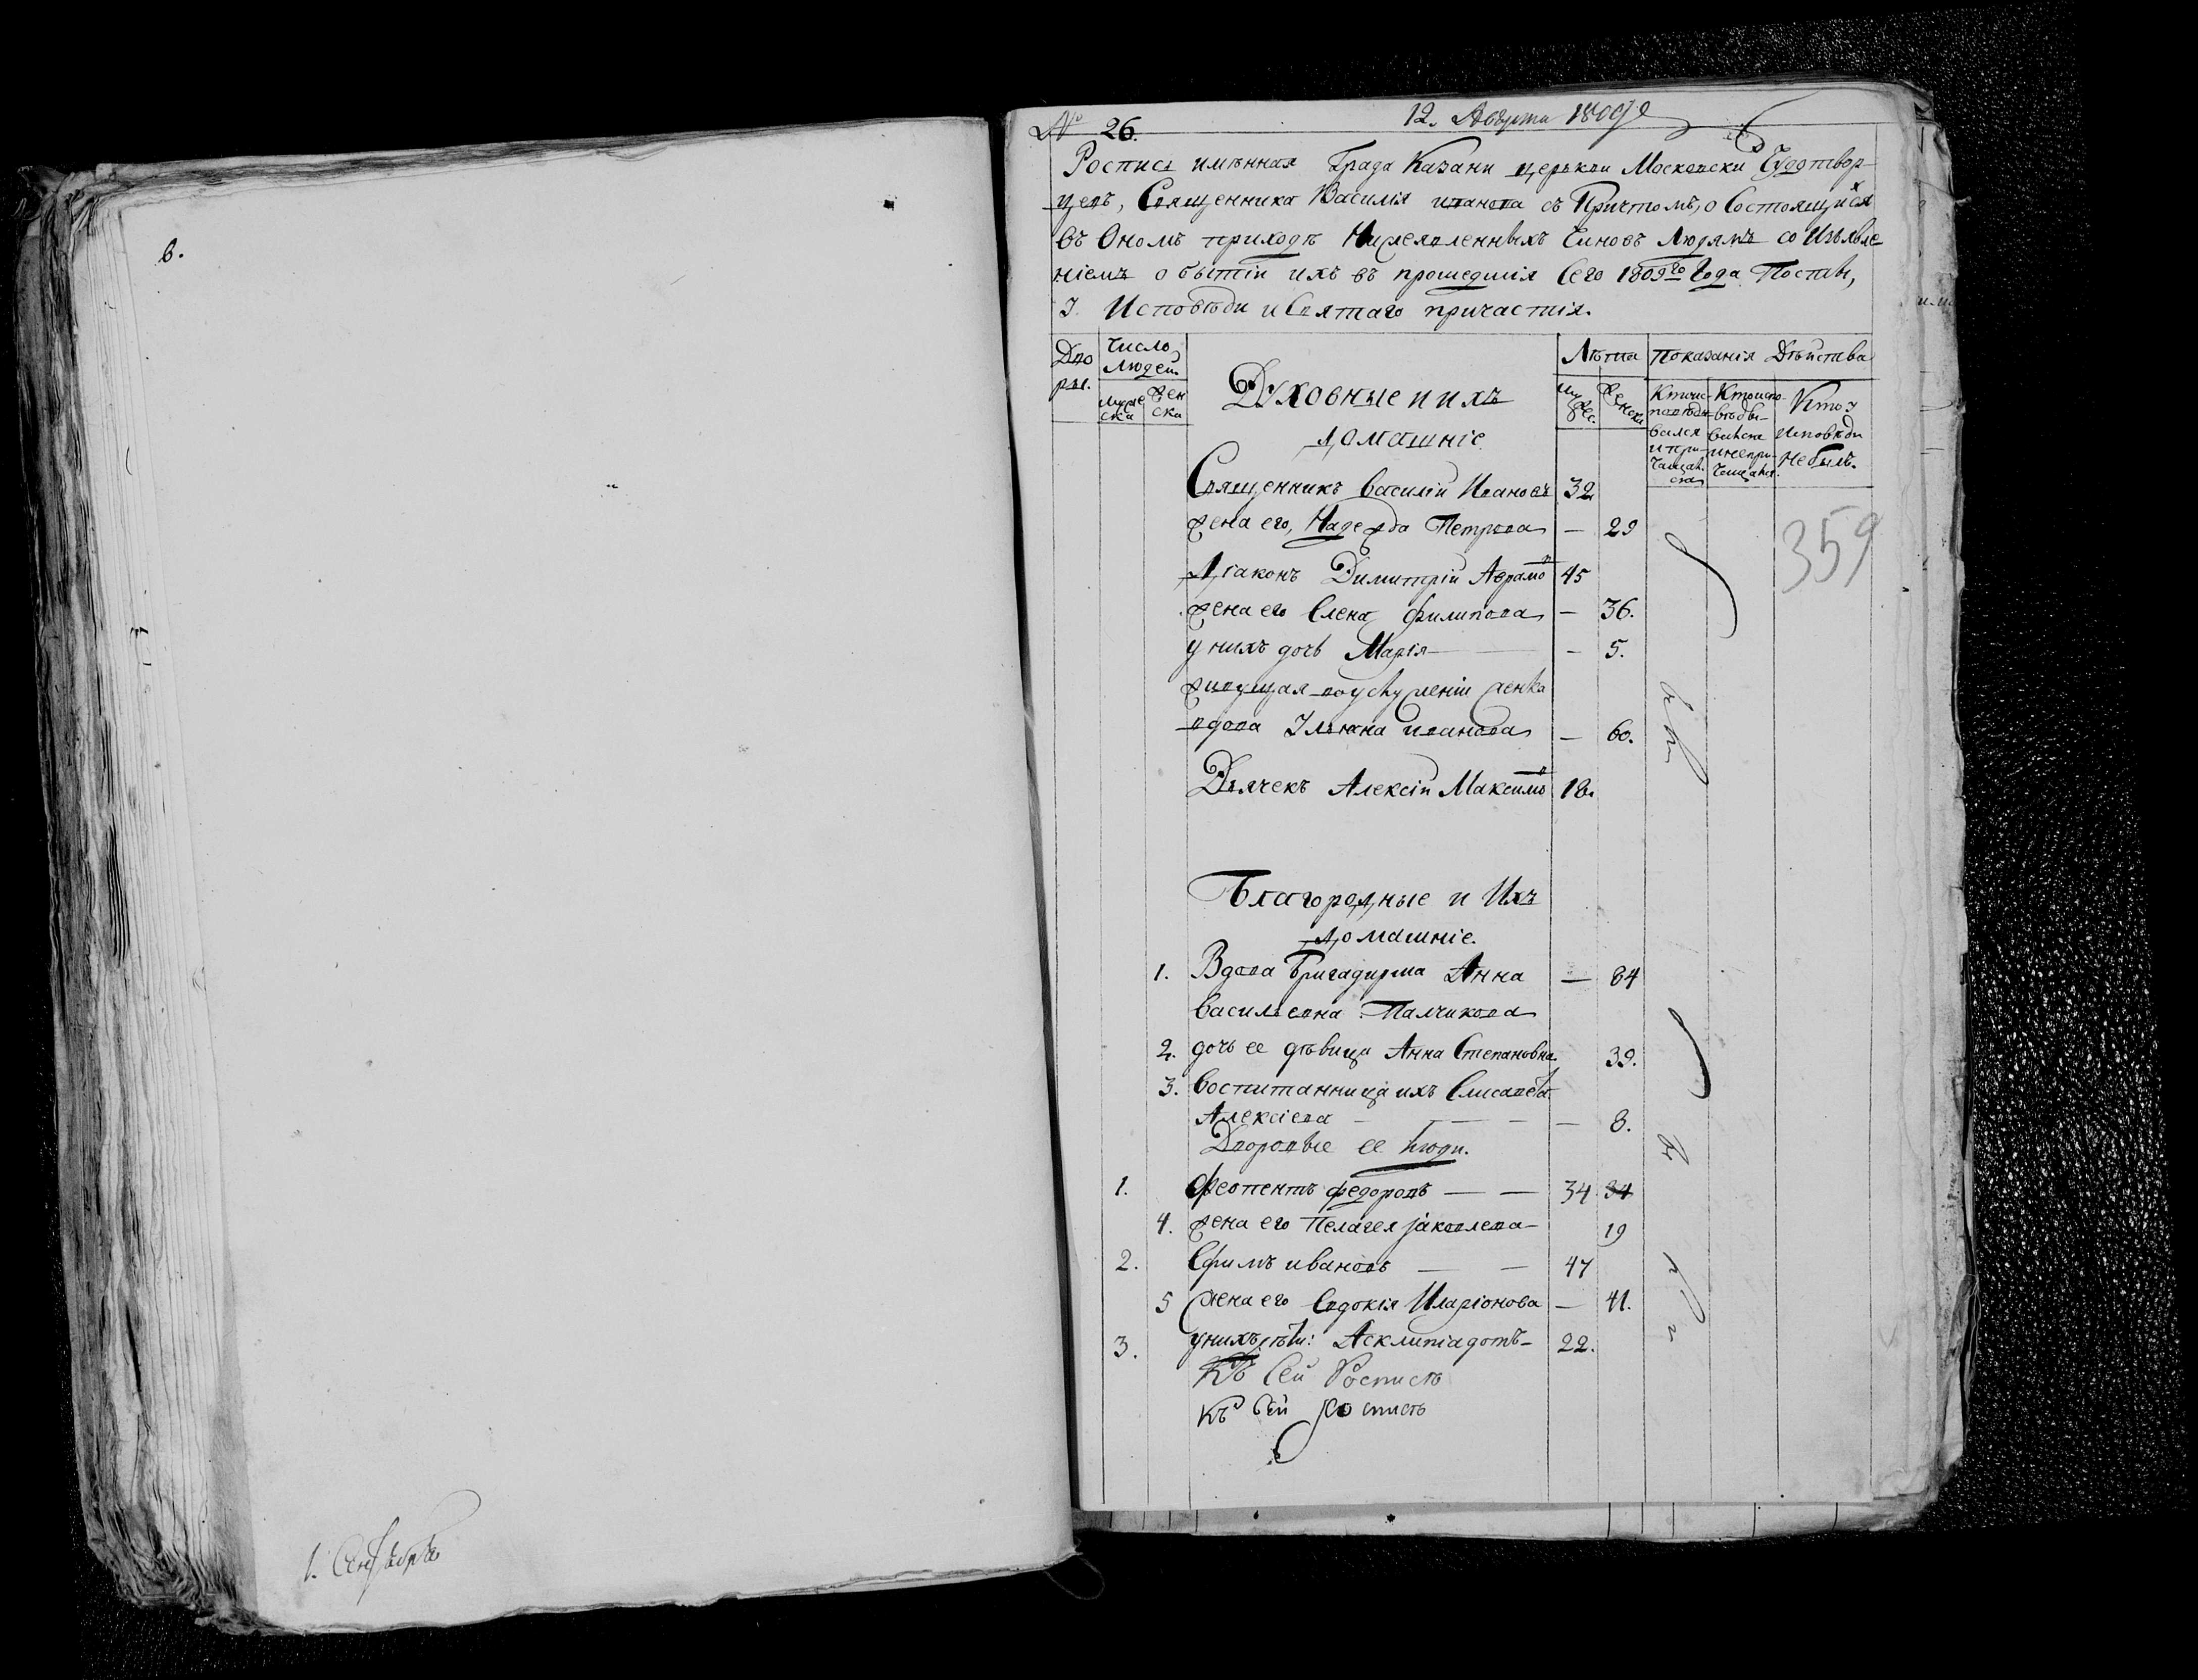 6.
1. Сентября
№ 26.
12. Августа 1809 г
Роспись имѣнная Града Казани церькви Московски Чудотвор-
цевъ, Священника Василія иванова съ Причтомъ, о Состоящихся
въ Ономъ приходѣ Нижеявленныхъ Чиновъ Людямъ со Изъявле
ніемъ о бытіи ихъ въ прошедшія Сего 1809го Года Посты,
У Исповѣди и Святаго причастія.
Дво
ры.
Число
Людей
муже
ска
жен
ска
Духовные и ихъ
домашніе
Лѣта
мужес.
женски
Показанія Дѣйства
Кто ис-
повѣды
вался
и при-
чащал
ся
Кто испо-
вѣды-
вался
и непри-
чащался.
Кто у
исповѣди
небылъ.
Священникъ василій Ивановъ 32
жена его, Надежда Петрова — 29
359
Діаконъ Димитрій Аврамовъ 45
жена его Елена филипова — 36.
у нихъ дочь Марія — 5.
вдова Ульяна иванова — 60.
Дьячекъ Алексій Максимовъ 18.
Благородные и Ихъ
домашніе.
1. Вдова Бригадирша Анна — 84
васильевна Палчикова
2. дочь ее дѣвица Анна Степановна 39.
3. воспитанница ихъ Елисавета
Алексіева — — — — 8.
Дворовые ее люди.
1. феопентъ федоровъ — — 34 34
4. жена его Пелагея яковлева — 19
2. Ефимъ ивановъ — — 47
5 жена его Евдокія Иларіонова — 41.
3. у нихъ дѣти: Асклипіадотъ — 22.
Къ Сей Росписѣ
къ Сей Росписѣ